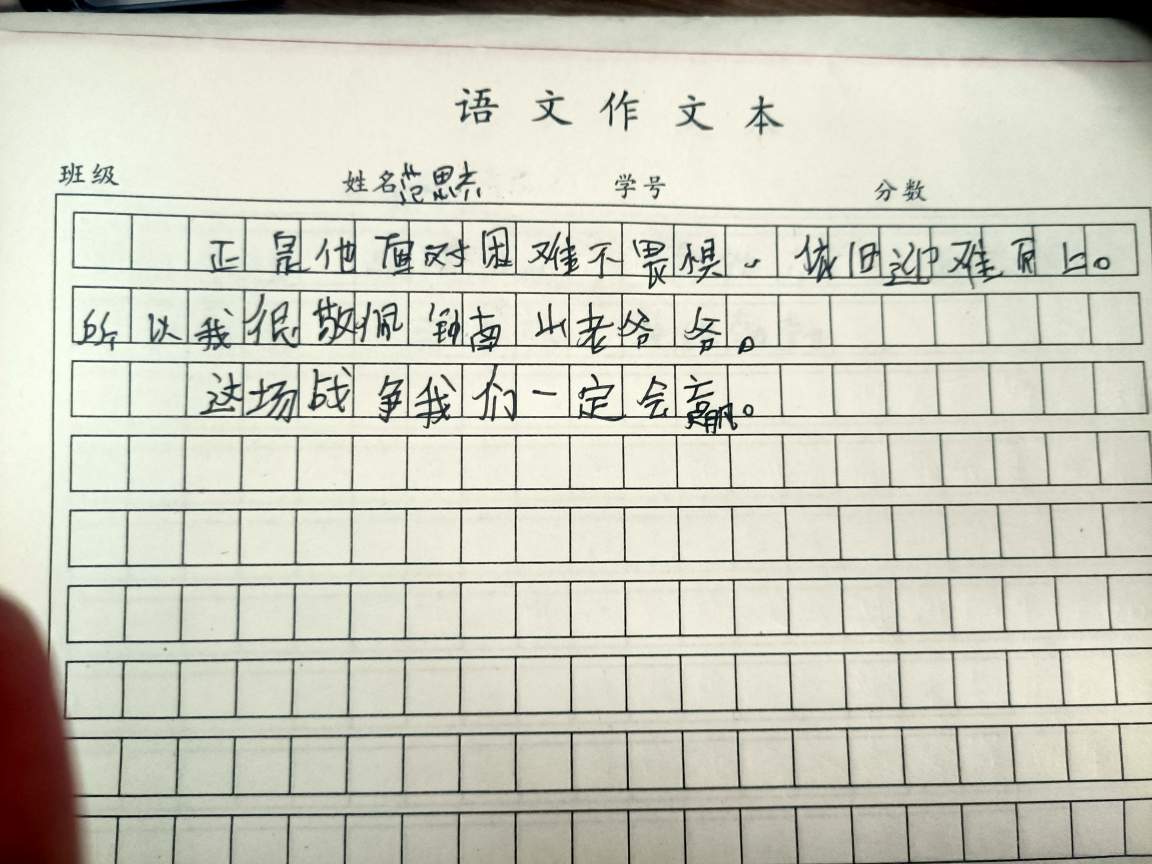 语文作文本
班级 姓名范思杰 学号 分数
正是他面对困难不畏惧、依旧迎难而上。
所以我很敬佩钟南山老爷爷。
这场战争我们一定会赢。